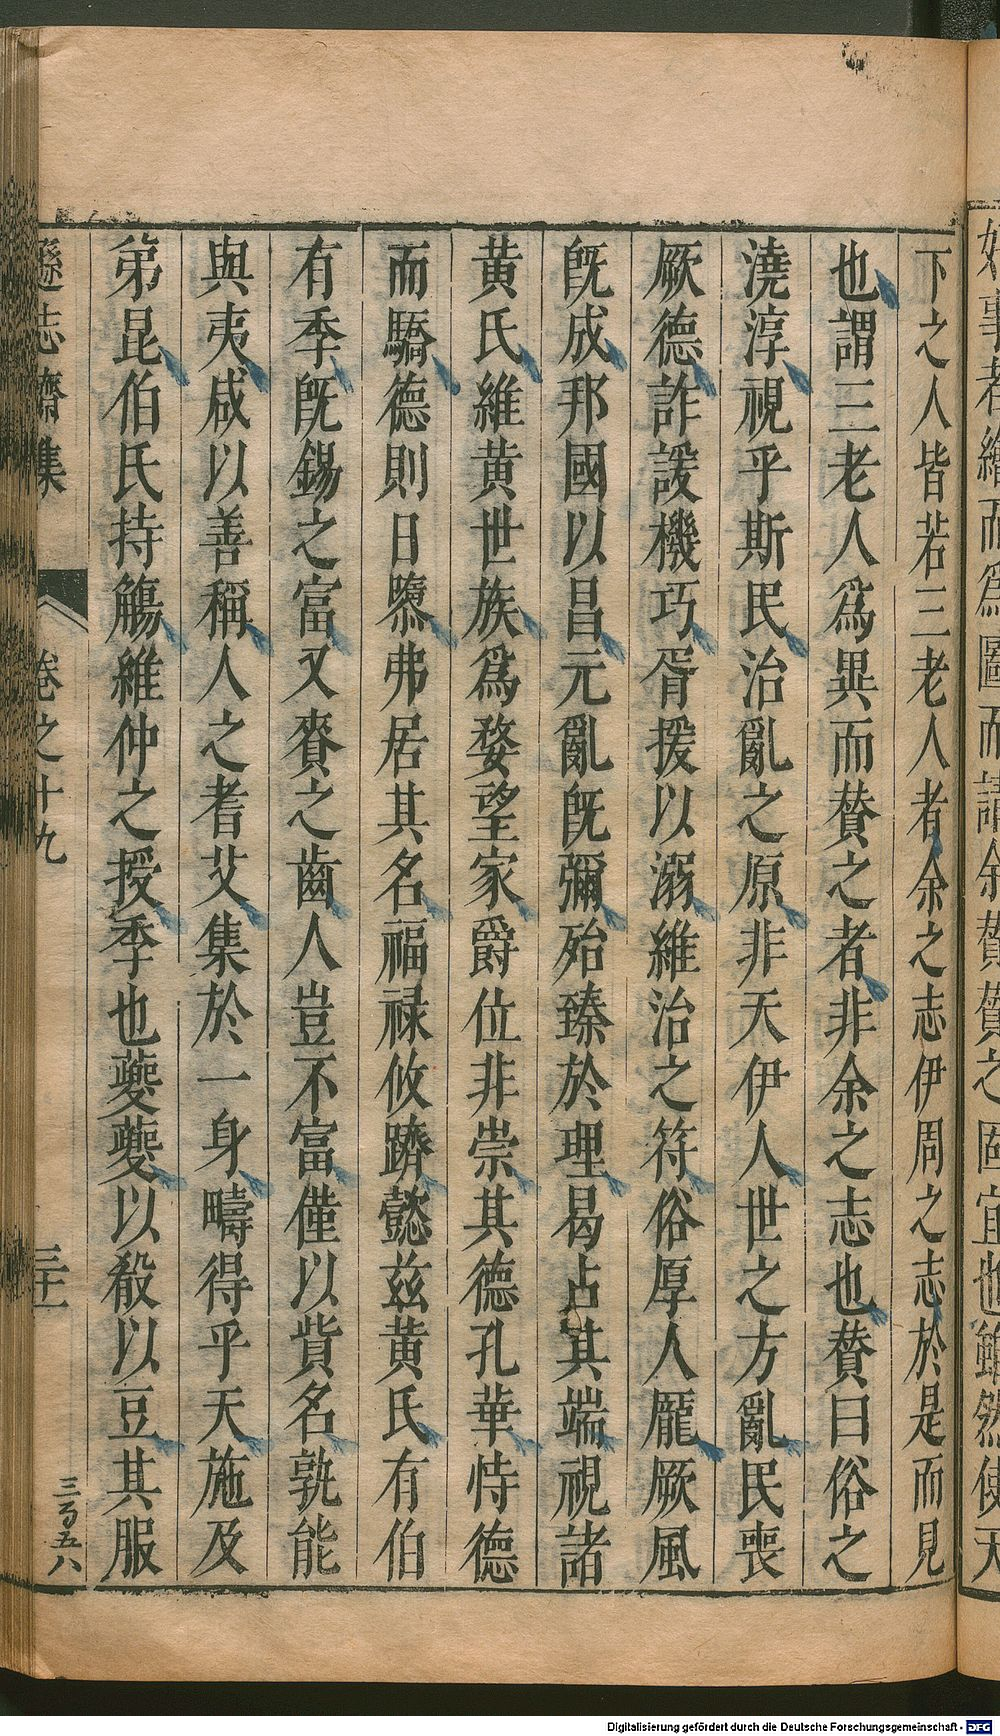 好事者繪而爲圖而請余贊贊之固宜也雖然使天
下之人皆若三老人者余之志伊周之志於是而見
也謂三老人爲異而贊之者非余之志也贊曰俗之
澆淳視乎斯民治亂之原非天伊人世之方亂民喪
厥德詐諼機巧胥援以溺維治之符俗厚人厖厥風
旣成邦國以昌元亂旣彌殆臻於理曷占其端視諸
黃氏維黃世族爲婺望家爵位非崇其德孔華恃德
而驕德則日隳弗居其名福祿攸躋懿兹黃氏有伯
有季旣錫之富又賚之齒人豈不富僅以貲名孰能
與夷咸以善稱人之耆艾集於一身疇得乎天施及
弟昆伯氏持觴維仲之授季也夔夔以殽以豆其服
遜志齋集
卷之十九
三十一
三百五八
Digitalisierung gefördert durch die Deutsche Forschungsgemeinschaft - DFG